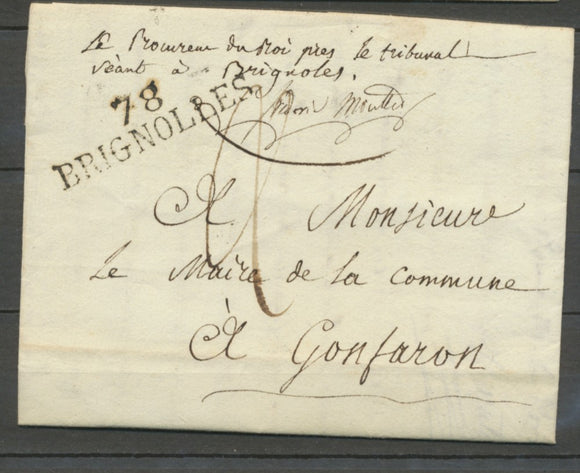 Le Procureur du Roi pres le tribunal
séant à Brignoles.
78
BRIGNOLLES
A Monsieure
Le Maire de la commune
à
A Gonfaron